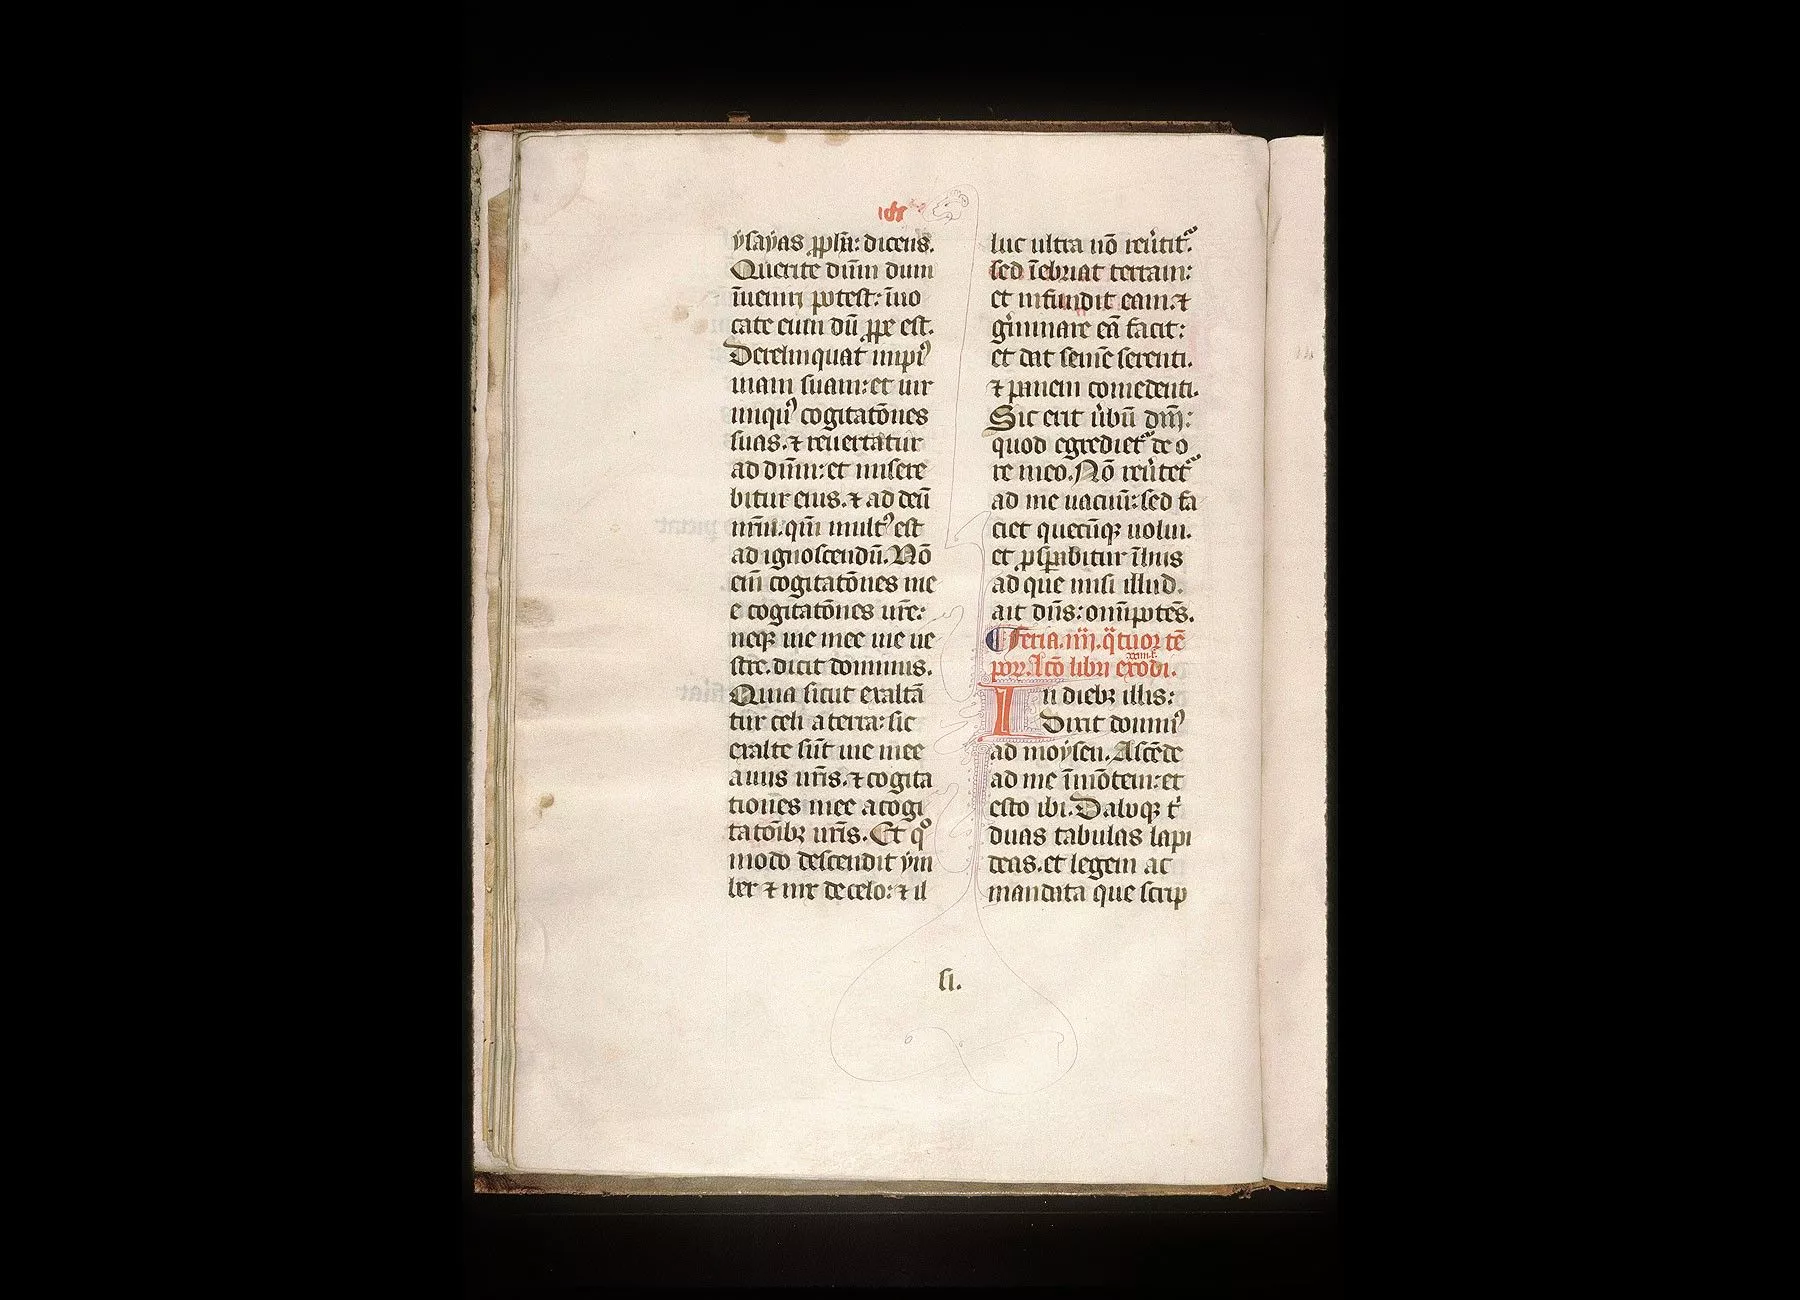 ysayas ꝓph̃a: dicens.
Querite dn̄m dum
īueniri potest: īuo
cate eum dū ꝓpe est.
Derelinquat impiꝰ
uiam suam: et uir
iniquꝰ cogitatōnes
suas. ⁊ reuertatur
ad dn̄m: et misere
bitur eius. ⁊ ad deū
nr̄m. qm̄ multꝰ est
ad ignoscendū. Nō
eni᷒ cogitatōnes me
e cogitatōnes ur̄e:
neqꝫ uie mee uie ue
stre. dicit dominus.
Quia sicut exaltā
tur celi a terra: sic
exalte sūt uie mee
a uiis ur̄is. ⁊ cogita
tiones mee a cogi
tatōibꝫ ur̄is. Et qͦ
modo descendit ym
ber ⁊ nix de celo: ⁊ il
luc ultra nō reu̓tit᷑.
sed īebriat terram:
et infundit eam: ⁊
gͥminare eā facit:
et dat semē serenti.
⁊ panem comedenti.
Sic erit u̓bū dm̄:
quod egrediet᷑ de o
re meo. Nō reu̓tet᷑
ad me uacuū: sed fa
ciet quecūqꝫ uolui.
et ꝓsꝑabitur ī hiis
ad que misi illud.
ait dn̄s: omīpotēs.
Feria. iiij. q̈tuor tē
poꝝ. Lc̄o libri exodi.
In diebꝫ illis:
Dixit dominꝰ
ad moysen. Ascēde
ad me ī mōtem: et
esto ibi. Daboqꝫ tͥ
duas tabulas lapi
deas. et legem ac
mandata que scrip
si.